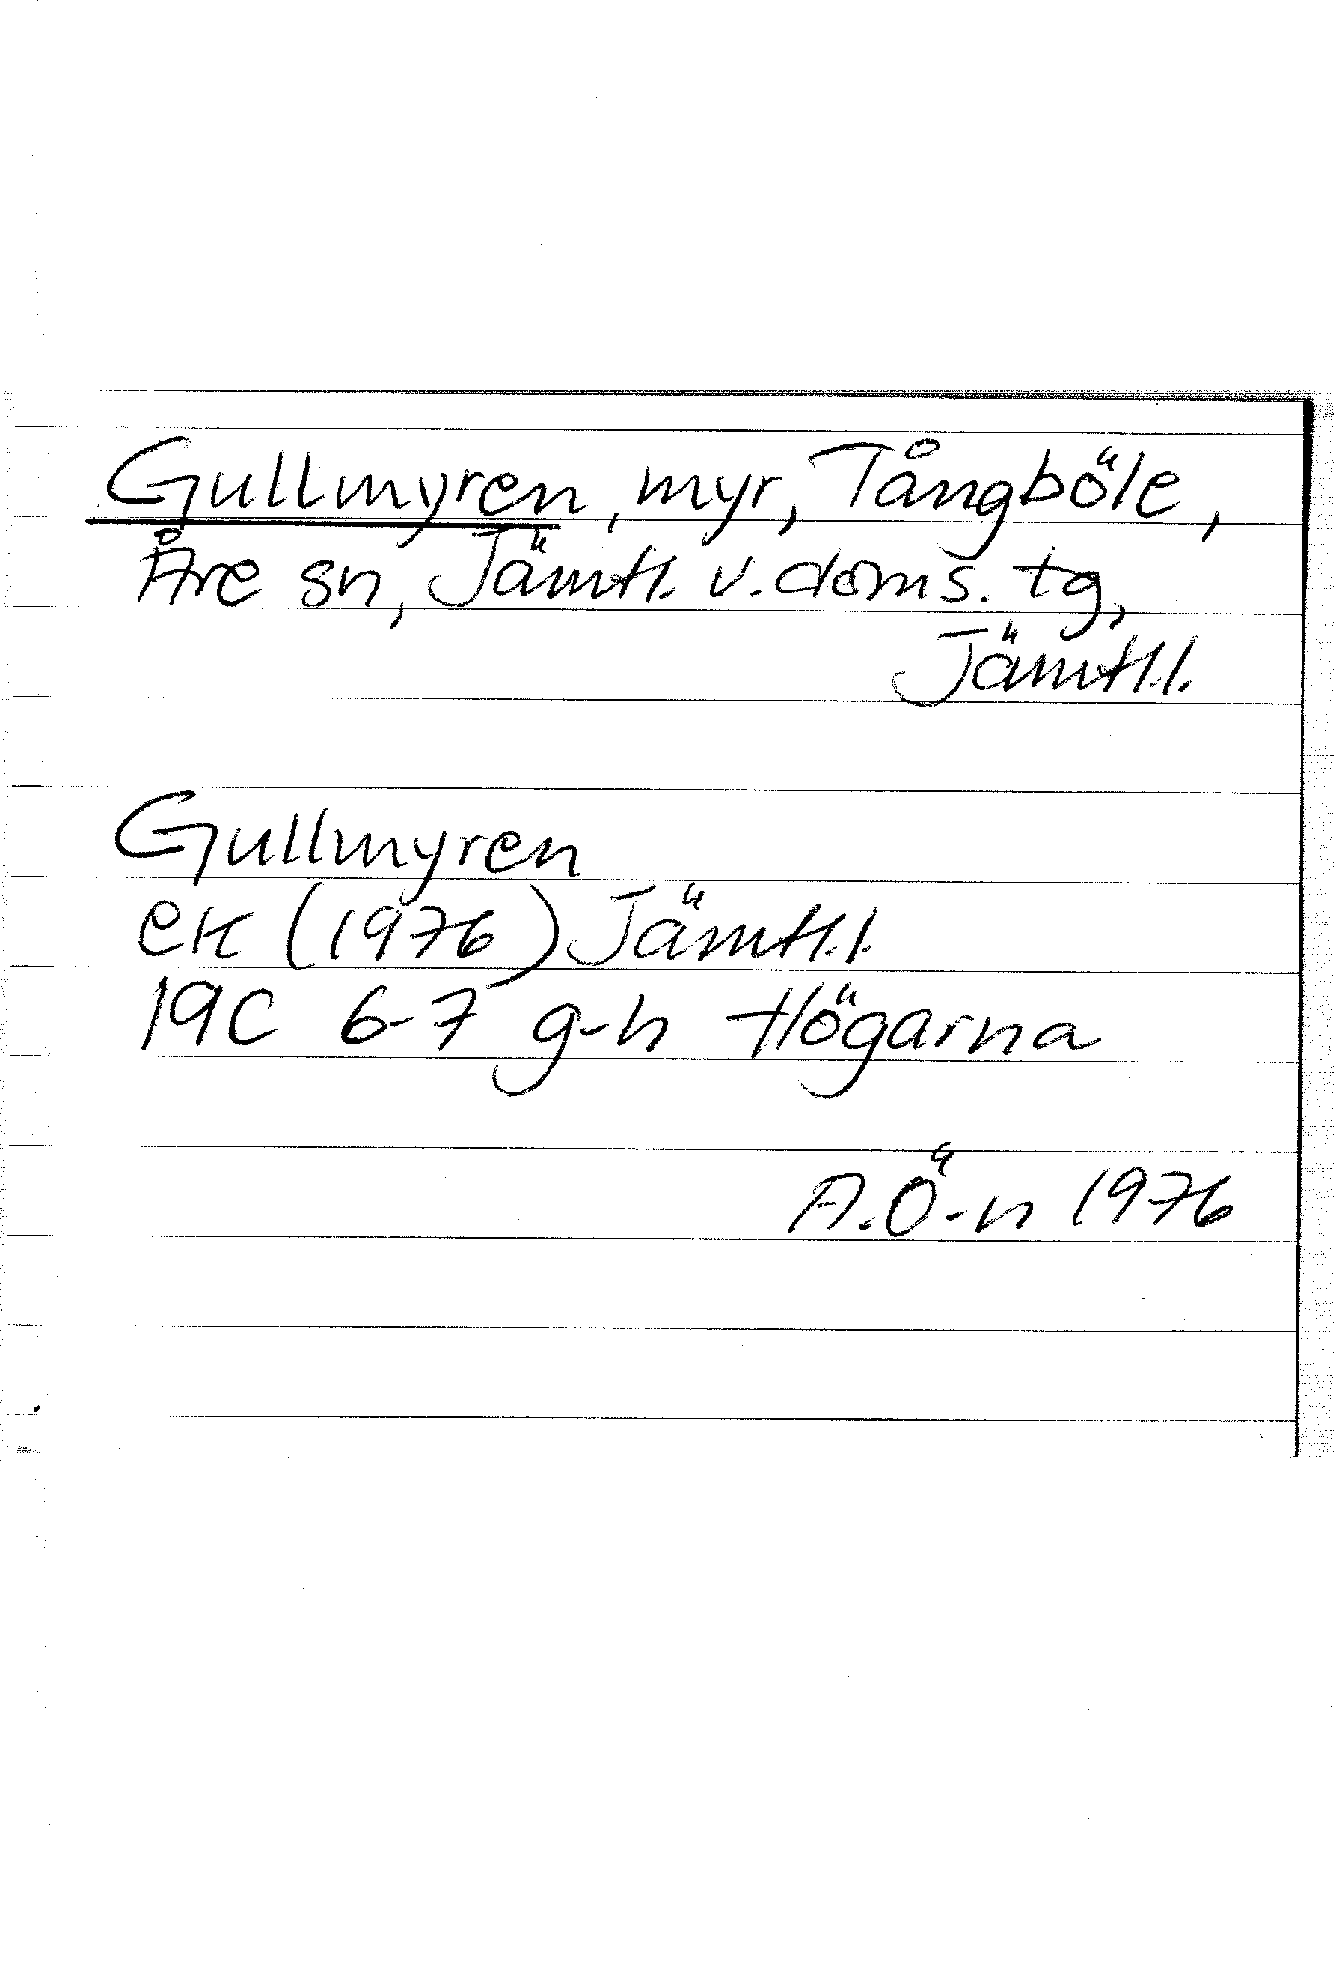 Gullmyren, myr, Tångböle,
Åre sn, Jämtl. v. doms. tg,
Jämtl.l.
Gullmyren
ek (1976) Jämtl.l.
19C 6-7 g-h Högarna
A.Ö-n 1976